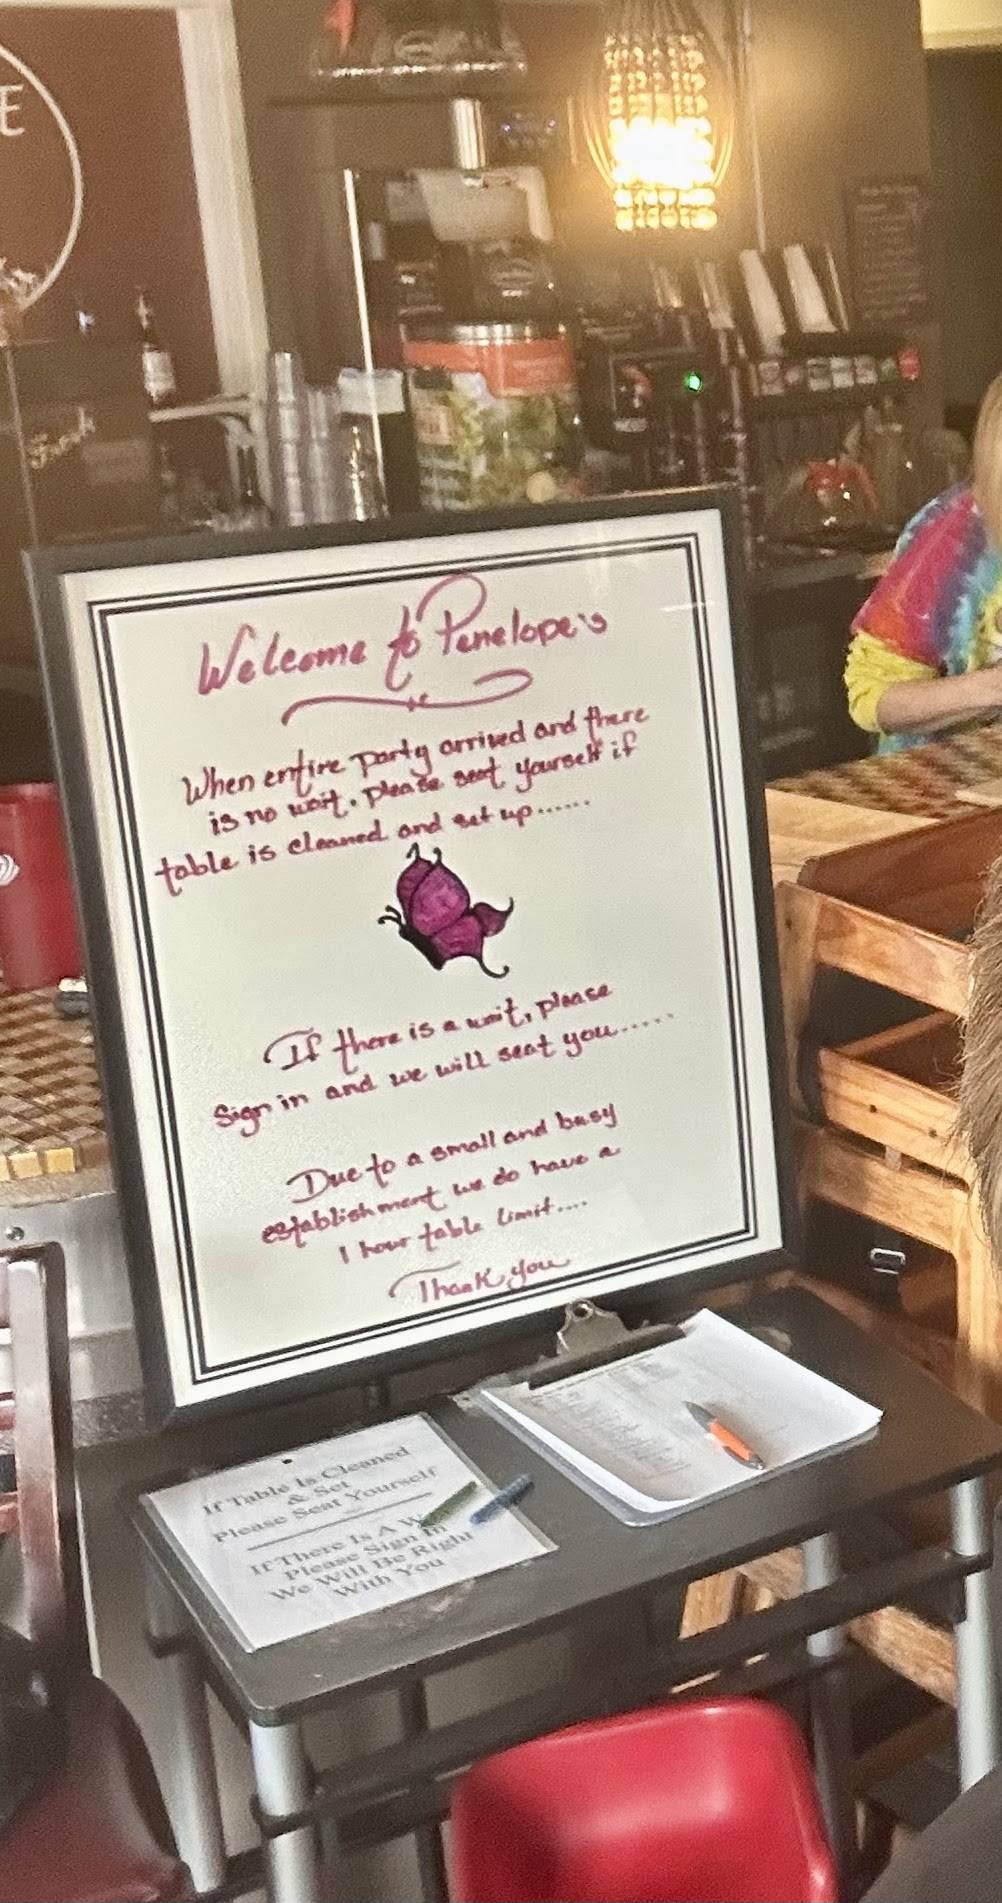 Welcome to Penelope's
When entire party arrived and there
is no wait. please seat yourself if
table is cleaned and set up......
If there is a wait, please
Sign in and we will seat you.....
Due to a small and busy
establishment we do have a
1 hour table limit....
Thank you
If Table Is Cleaned
& Set
Please Seat Yourself
If There Is A
Please Sign In
We Will Be Right
With You